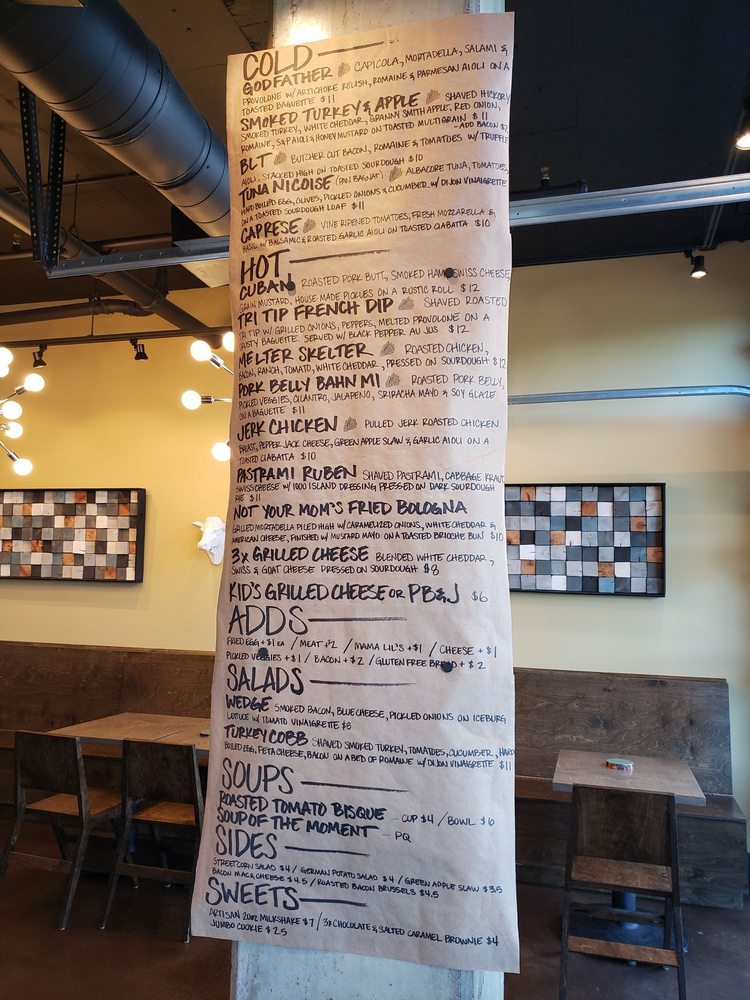 COLD
GODFATHER CAPICOLA, MORTADELLA, SALAMI &
PROVOLONE W/ ARTICHOKE RELISH, ROMAINE & PARMESAN AIOLI ON A
TOASTED BAGUETTE $11
SMOKED TURKEY & APPLE SHAVED HICKORY
SMOKED TURKEY, WHITE CHEDDAR, GRANNY SMITH APPLE, RED ONION,
ROMAINE, S&P AIOLI & HONEY MUSTARD ON TOASTED MULTIGRAIN $11
-ADD BACON $2
BLT BUTCHER CUT BACON, ROMAINE & TOMATOES W/ TRUFFLE
AIOLI, STACKED HIGH ON TOASTED SOURDOUGH $10
TUNA NICOISE (PAN BAGNAT) ALBACORE TUNA, TOMATOES,
HARD BOILED EGG, OLIVES, PICKLED ONIONS & CUCUMBER W/ DIJON VINAIGRETTE
ON A TOASTED SOURDOUGH LOAF $11
CAPRESE VINE RIPENED TOMATOES, FRESH MOZZARELLA &
BASIL W/ BALSAMIC & ROASTED GARLIC AIOLI ON TOASTED CIABATTA $10
HOT
CUBAN ROASTED PORK BUTT, SMOKED HAM SWISS CHEESE,
GRAIN MUSTARD, HOUSE MADE PICKLES ON A RUSTIC ROLL $12
TRI TIP FRENCH DIP SHAVED ROASTED
TRI TIP W/ GRILLED ONIONS, PEPPERS, MELTED PROVOLONE ON A
CRUSTY BAGUETTE. SERVED W/ BLACK PEPPER AU JUS $12
MELTER SKELTER ROASTED CHICKEN,
BACON, RANCH, TOMATO, WHITE CHEDDAR, PRESSED ON SOURDOUGH $12
PORK BELLY BAHN MI ROASTED PORK BELLY,
PICKLED VEGGIES, CILANTRO, JALAPENO, SRIRACHA MAYO & SOY GLAZE
ON A BAGUETTE $11
JERK CHICKEN PULLED JERK ROASTED CHICKEN
BREAST, PEPPER JACK CHEESE, GREEN APPLE SLAW & GARLIC AIOLI ON A
TOASTED CIABATTA $10
PASTRAMI RUBEN SHAVED PASTRAMI, CABBAGE KRAUT
SWISS CHEESE W/ 1000 ISLAND DRESSING PRESSED ON DARK SOURDOUGH
RYE $11
NOT YOUR MOM'S FRIED BOLOGNA
GRILLED MORTADELLA PILED HIGH W/ CARAMELIZED ONIONS, WHITE CHEDDAR &
AMERICAN CHEESE, FINISHED W/ MUSTARD MAYO ON A TOASTED BRIOCHE BUN $10
3X GRILLED CHEESE BLENDED WHITE CHEDDAR,
SWISS & GOAT CHEESE PRESSED ON SOURDOUGH $8
KID'S GRILLED CHEESE OR PB&J $6
ADDS
FRIED EGG + $1 EA / MEAT + $2 / MAMA LIL'S + $1 / CHEESE + $1
PICKLED VEGGIES + $1 / BACON + $2 / GLUTEN FREE BREAD + $2
SALADS
WEDGE SMOKED BACON, BLUE CHEESE, PICKLED ONIONS ON ICEBURG
LETTUCE W/ TOMATO VINAIGRETTE $8
TURKEY COBB SHAVED SMOKED TURKEY, TOMATOES, CUCUMBER, HARD
BOILED EGG, FETA CHEESE, BACON ON A BED OF ROMAINE W/ DIJON VINAIGRETTE $11
SOUPS
ROASTED TOMATO BISQUE - CUP $4 / BOWL $6
SOUP OF THE MOMENT - PQ
SIDES
STREET CORN SALAD $4 / GERMAN POTATO SALAD $4 / GREEN APPLE SLAW $3.5
BACON MAC & CHEESE $4.5 / ROASTED BACON BRUSSELS $4.5
SWEETS
ARTISAN 20OZ MILKSHAKE $7 / 3X CHOCOLATE & SALTED CARAMEL BROWNIE $4
JUMBO COOKIE $2.5